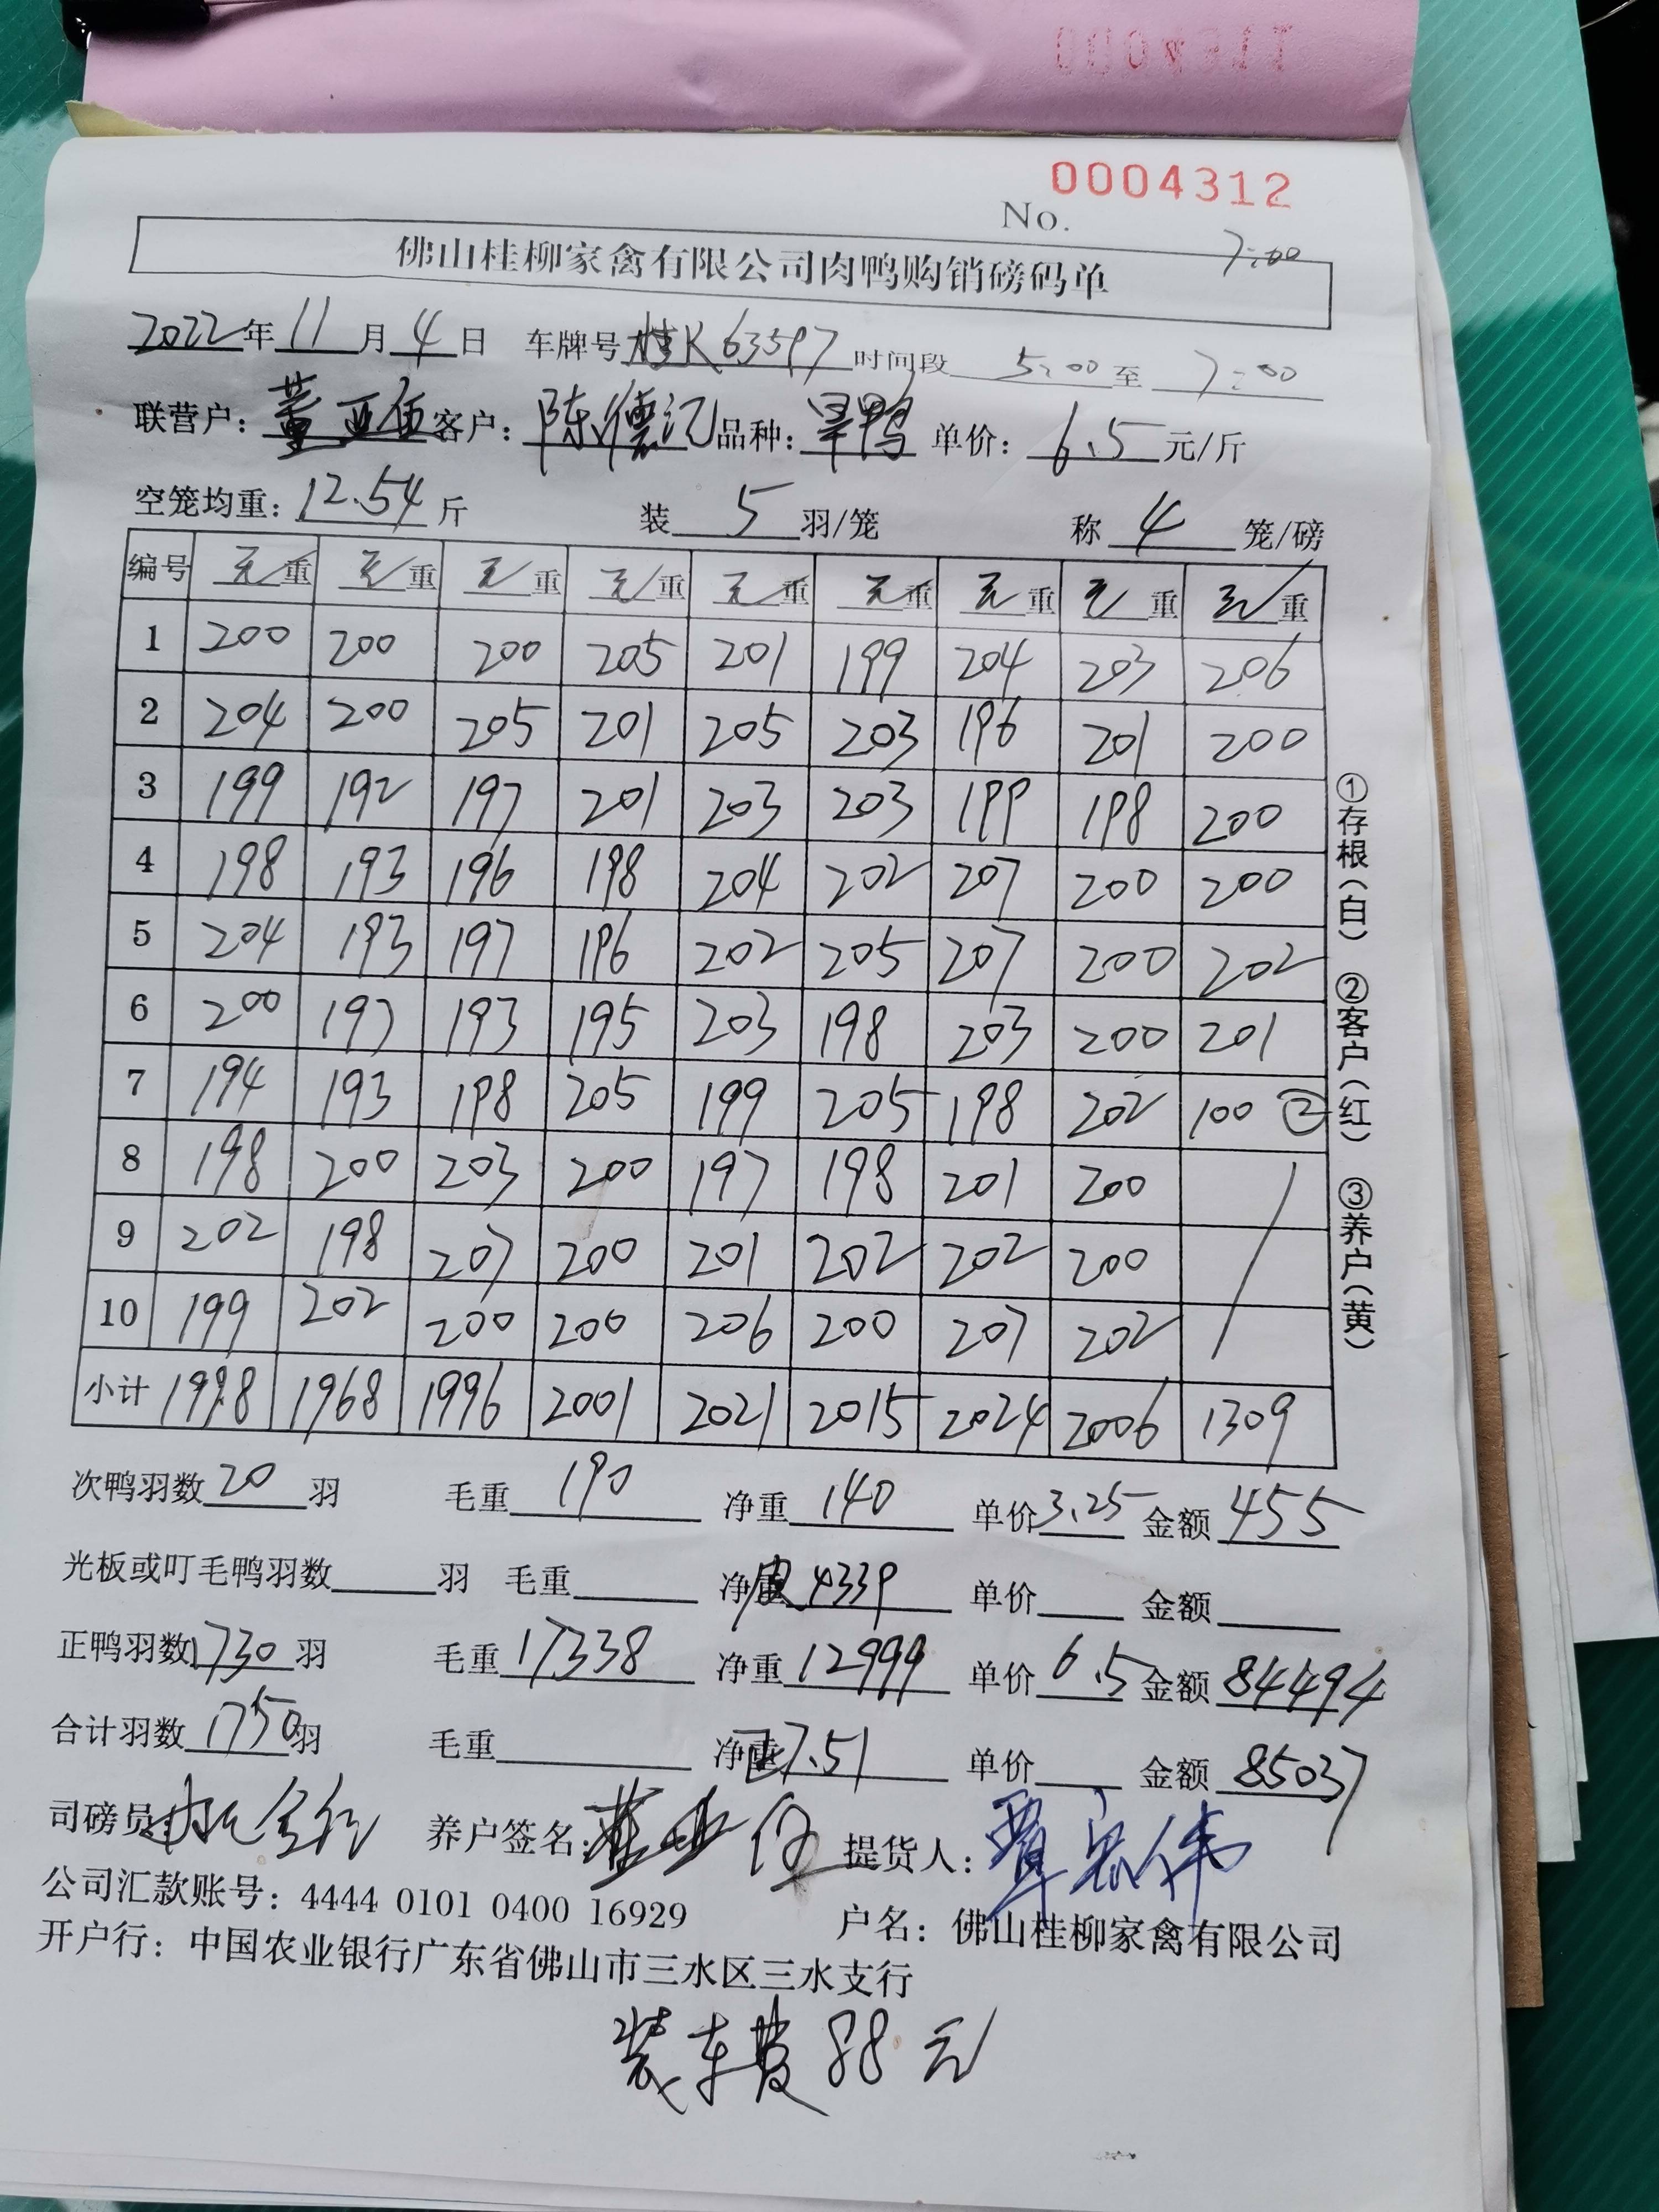 0004312
No.
7:00
佛山桂柳家禽有限公司肉鸭购销磅码单
2022年11月4日 车牌号桂K63597 时间段 5:00至 7:00
联营户: 董亚伍 客户: 陈德记 品种: 旱鸭 单价: 6.5元/斤
空笼均重: 12.54斤 装 5 羽/笼 称 4 笼/磅
编号 毛重 毛重 毛重 毛重 毛重 毛重 毛重 毛重 毛重
1 200 200 200 205 201 199 204 203 206
2 204 200 205 201 205 203 196 201 200
3 199 192 197 201 203 203 199 198 200
4 198 193 196 198 204 202 207 200 200
5 204 193 197 196 202 205 207 200 202
6 200 197 193 195 203 198 203 200 201
7 194 193 198 205 199 205 198 202 100 ②
8 198 200 203 200 197 198 201 200
9 202 198 207 200 201 202 202 200
10 199 202 200 200 206 200 207 202
小计 1998 1968 1996 2001 2021 2015 2024 2006 1309
①存根(白) ②客户(红) ③养户(黄)
次鸭羽数20羽 毛重190 净重140 单价3.25 金额455
光板或叮毛鸭羽数 羽 毛重 净重皮4339 单价 金额
正鸭羽数1730羽 毛重17338 净重12999 单价6.5 金额84494
合计羽数1750羽 毛重 净重 7.51 单价 金额85037
司磅员 养户签名: 提货人:
公司汇款账号: 4444 0101 0400 16929 户名: 佛山桂柳家禽有限公司
开户行: 中国农业银行广东省佛山市三水区三水支行
装车费88元